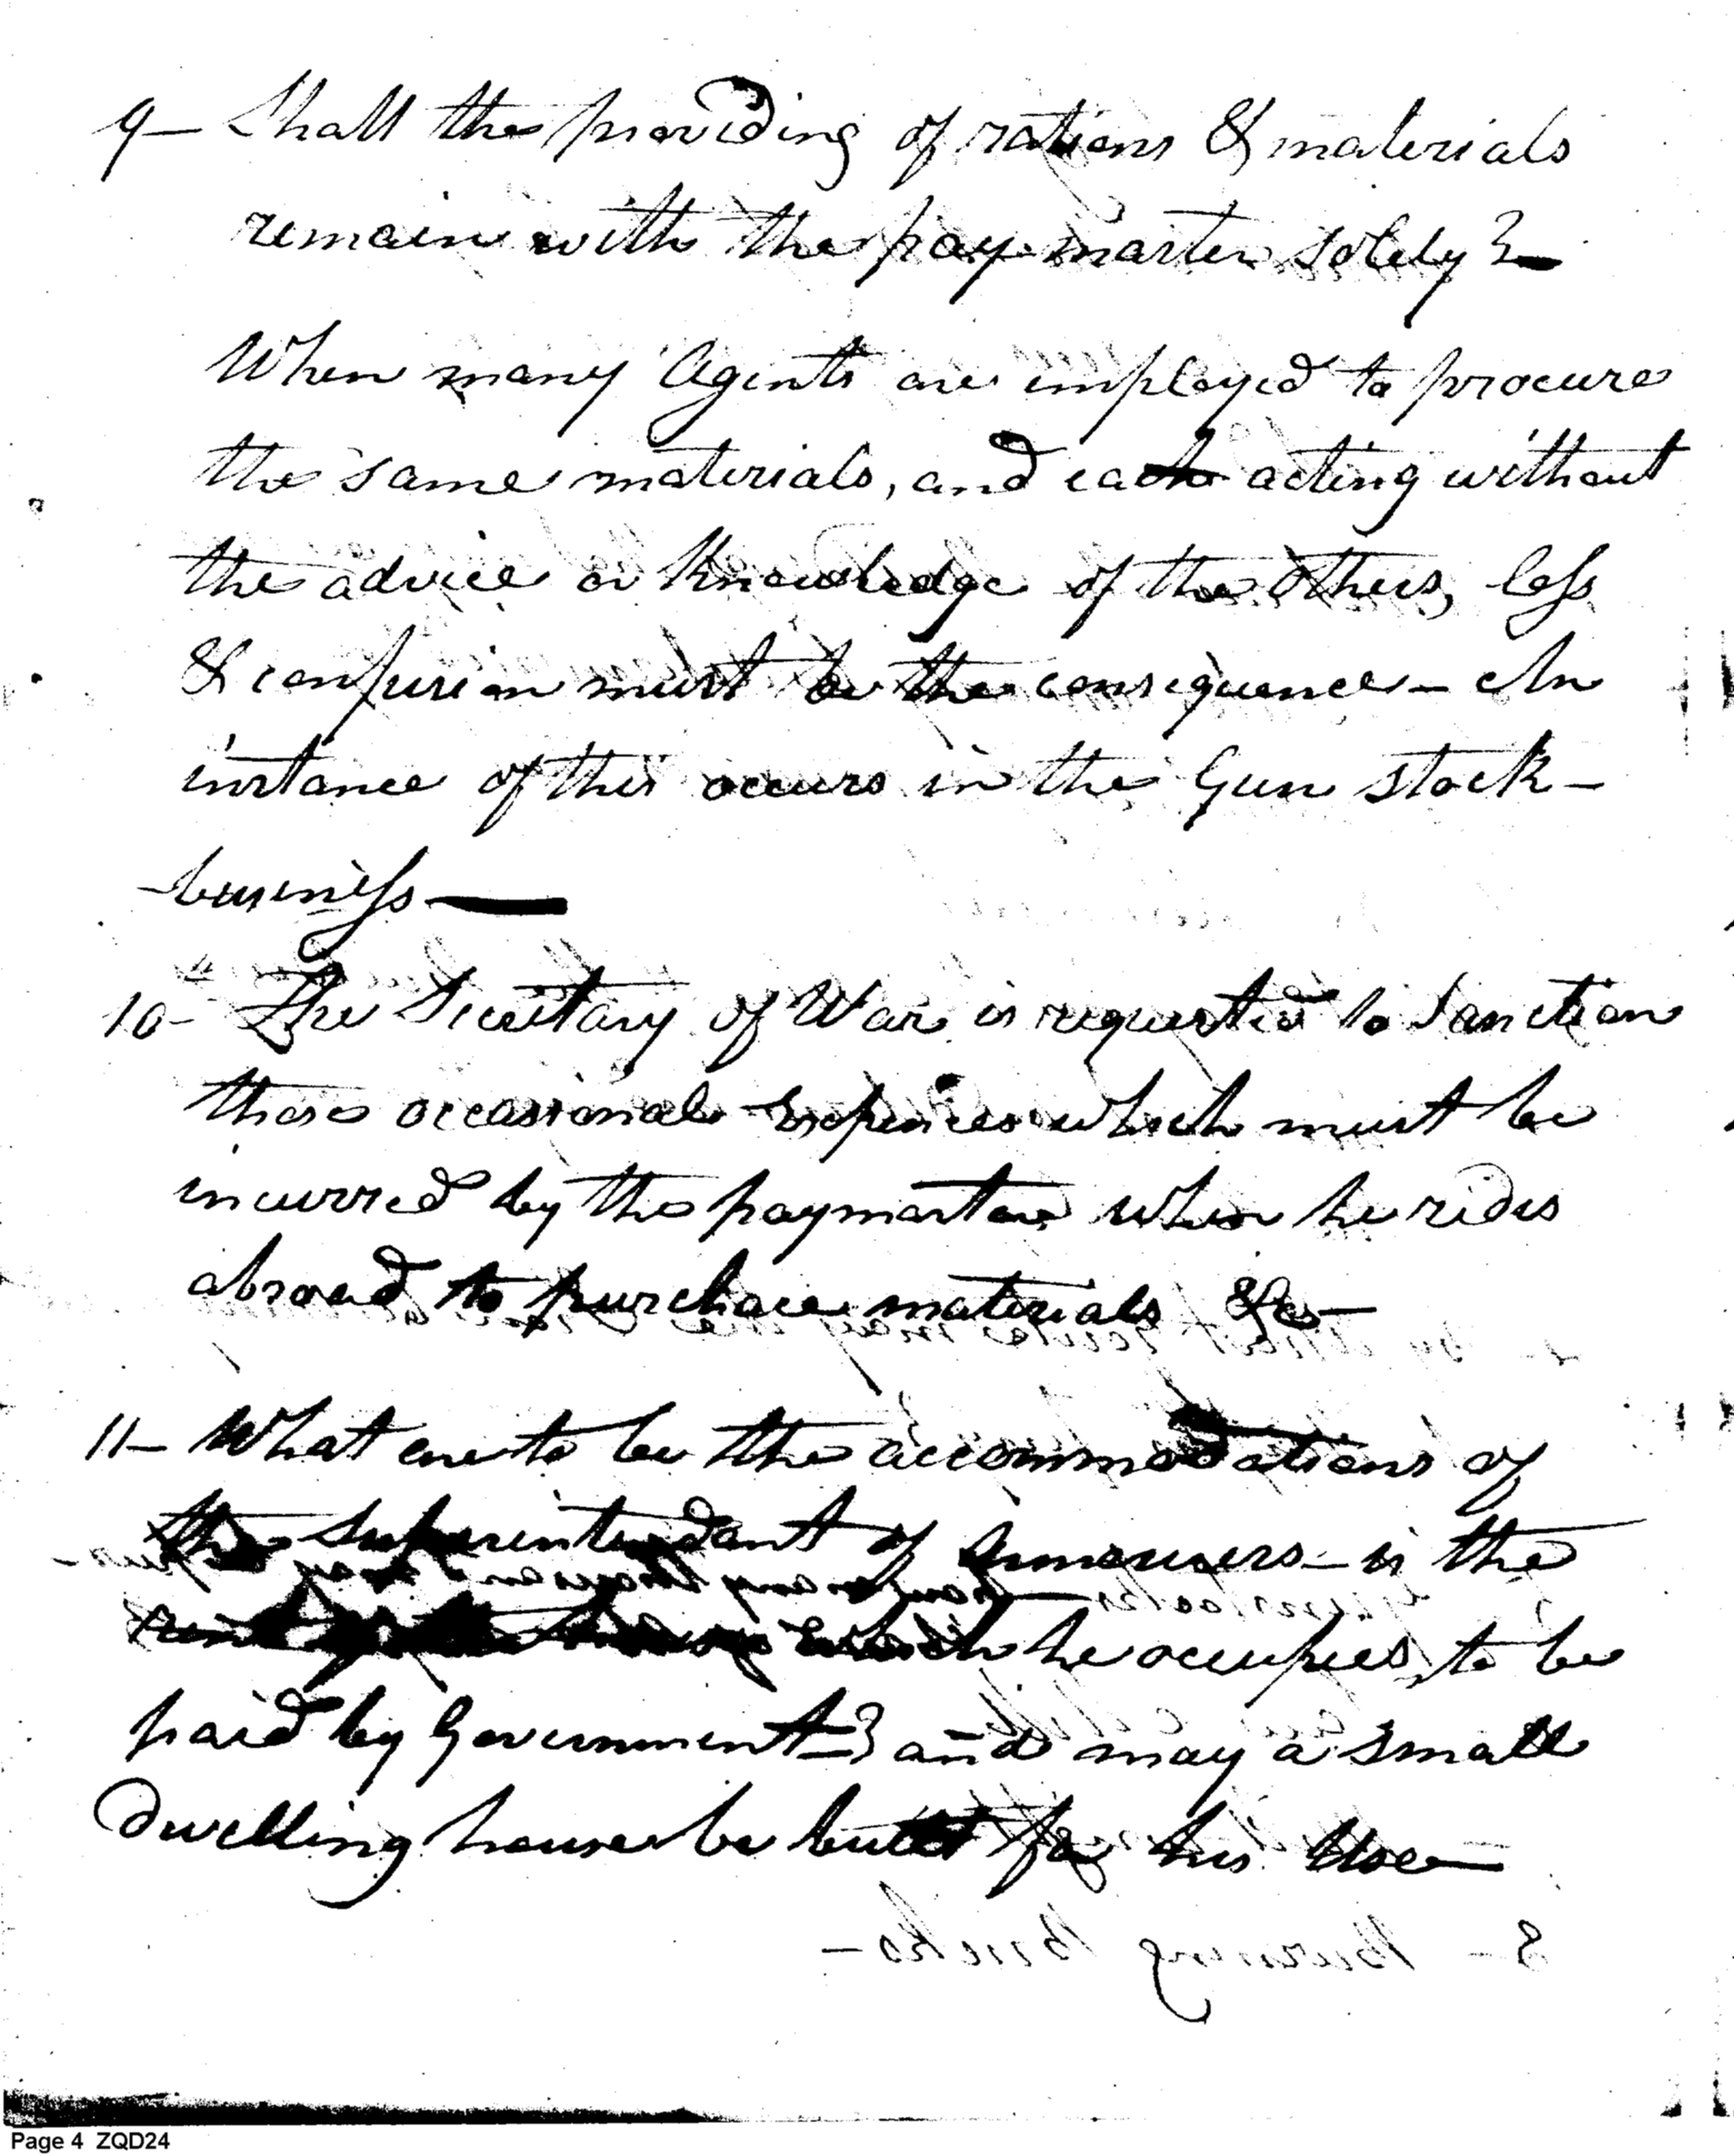 9- Shall the providing of rations & materials
remain with the pay-master solely?-
When many Agents are employed to procure
the same materials, and each acting without
the advice or Knowledge of the others, loss
& confusion must be the consequence - An
instance of this occurs in the Gun stock-
-business-
10- The Secretary of War is requested to Sanction
those occasional expences which must be
incurred by the paymaster when he rides
abroad to purchase materials &c-
11- What are to be the accommodations of
the superintendant of Armourers - is the
rent of the house which he occupies, to be
paid by Government-? and may a small
dwelling house be built for his Use-
8- Burning Bricks-
Page 4 ZQD24